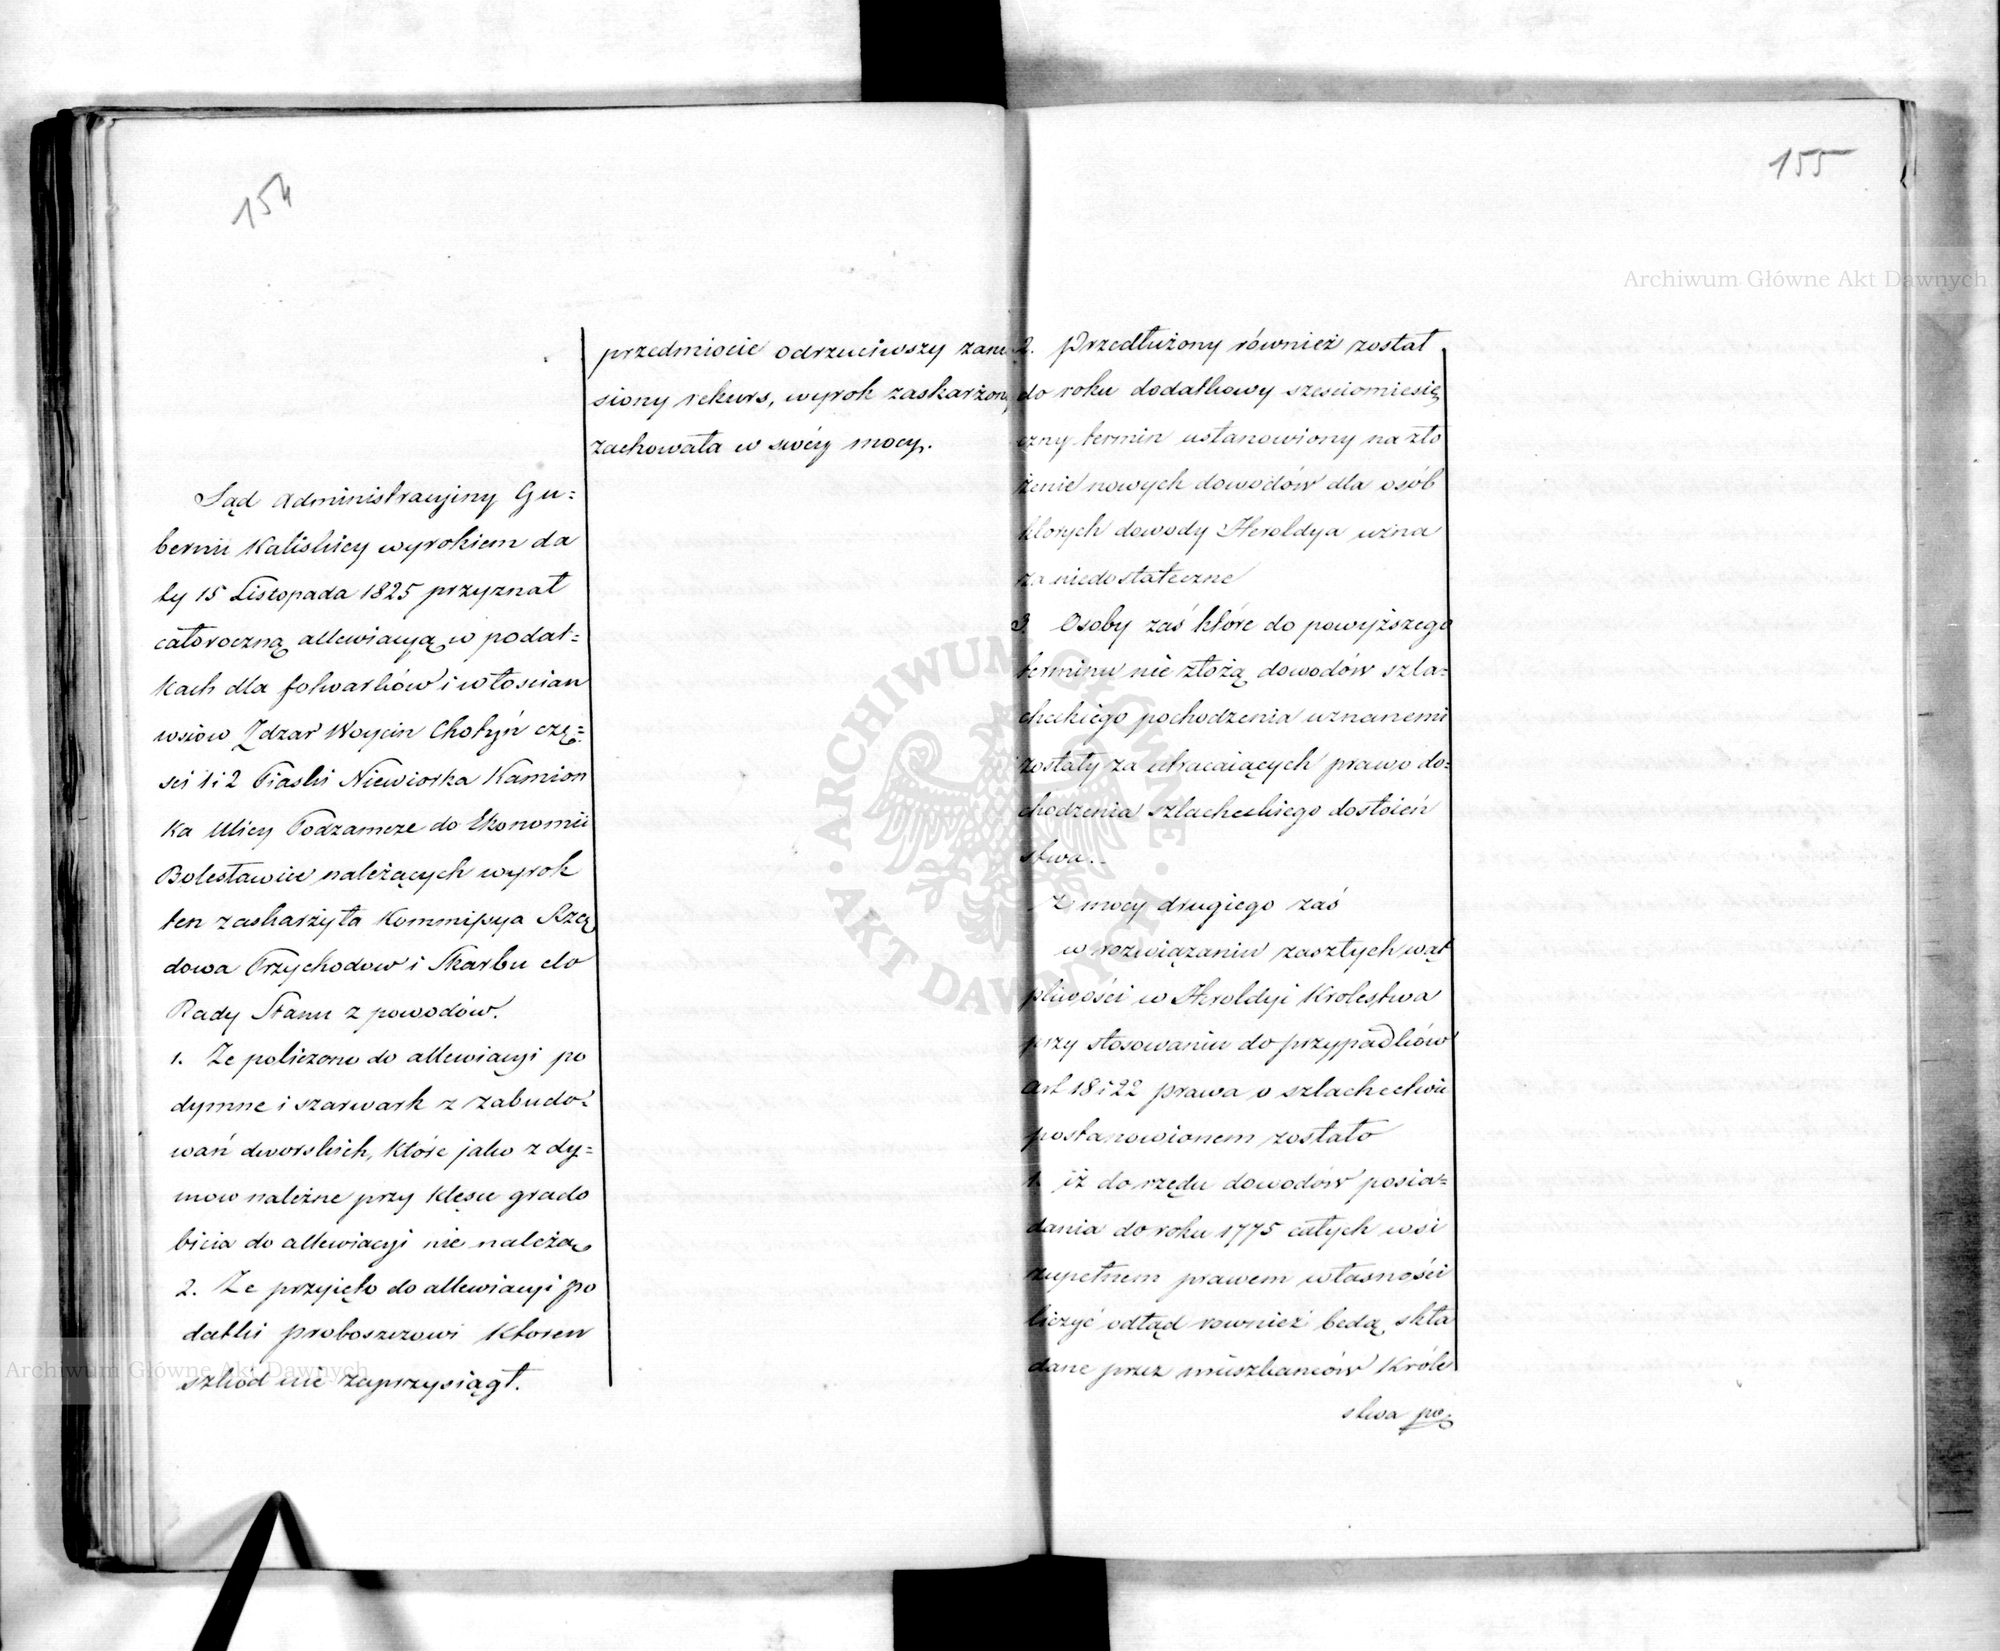 154
przedmiocie odrzuciwszy zanie
siony rekurs, wyrok zaskarżony
zachowała w swéy mocy.
Sąd Administracyjny Gu=
bernii Kaliskiey wyrokiem da
ty 15 Listopada 1825 przyznał
całoroczną allewiacyą w podat=
kach dla folwarków i włoscian
wsiow Zdzar Woycin Chotyń czę=
sci 1 i 2 Piaski Niewiorka Kamion
ka Ulicy Podzamcze do Ekonomii
Bolesławice należących wyrok
ten zaskarżyła Kommissya Rzą
dowa Przychodow i Skarbu do
Rady Stanu z powodów.
1. Ze policzono do allewiacyi po
dymne i szarwark z zabudo=
wań dworskich, które jako z dy=
mow należne przy klęsce grado
bicia do allewiacyi nie należą
2. Ze przyjęto do allewiacyi po
datki proboszczowi ktoren
szkod nie zaprzysiągł.
155
2. Przedłużony również został
do roku dodatkowy szesciomiesię
czny termin ustanowiony na zło
żenie nowych dowodów dla osób
ktorych dowody Heroldya uzna
za niedostateczne
3. Osoby zaś które do powyższego
terminu nie złożą dowodów szla=
checkiego pochodzenia uznanemi
zostały za utracaiących prawo do=
chodzenia szlacheckiego dostoień
stwa.
Z mocy drugiego zaś
w rozwiązaniu zaszłych wąt
pliwości w Heroldyi Krolestwa
przy stosowaniu do przypadków
art 18 i 22 prawa o szlachectwie
postanowionem zostało
1. iż do rzędu dowodów posia=
dania do roku 1775 całych wsi
zupełnem prawem własności
liczyć odtąd rownież będą skła
dane przez mieszkanców Króle
stwa po
Archiwum Główne Akt Dawnych
Archiwum Główne Akt Dawnych
ARCHIWUM GŁÓWNE AKT DAWNYCH